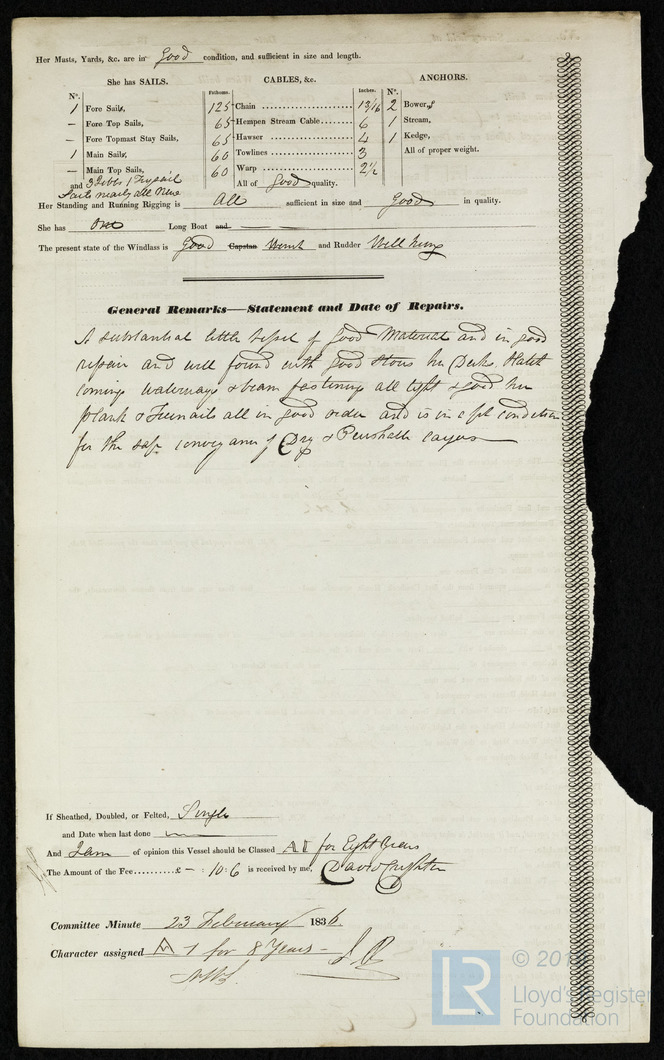 Her Masts, Yards, &c. are in Good condition, and sufficient in size and length.
She has SAILS. CABLES, &c. ANCHORS.
Nº. Fathoms. Inches. Nº.
1 Fore Sails, 125 Chain 13/16 2 Bowers,
– Fore Top Sails, 65 Hempen Stream Cable 6 1 Stream,
– Fore Topmast Stay Sails, 65 Hawser 4 1 Kedge,
1 Main Sails, 60 Towlines 3 All of proper weight.
– Main Top Sails, 60 Warp 2½
and 3 Jibbs 1 Trysail All of Good quality.
Sails nearly all New
Her Standing and Running Rigging is All sufficient in size and Good in quality.
She has One Long Boat and
The present state of the Windlass is Good Capstan Winch and Rudder Well hung
General Remarks—Statement and Date of Repairs.
A substantial little Vessel of Good Material and in good
repair and well found with good Stores her Decks, Hatch
comings waterways & beam fastenings all tight & good her
plank & Treenails all in good order and is in a fit condition
for the safe conveyance of Dry & Perishable cargoes
If Sheathed, Doubled, or Felted, Single
and Date when last done
And I am of opinion this Vessel should be Classed A1 for Eight Years
The Amount of the Fee..........£ – : 10 : 6 is received by me, David Crighton
Committee Minute 23 February 1836
Character assigned A 1 for 8 Years –
LR
© 201
Lloyd's Register
Foundation